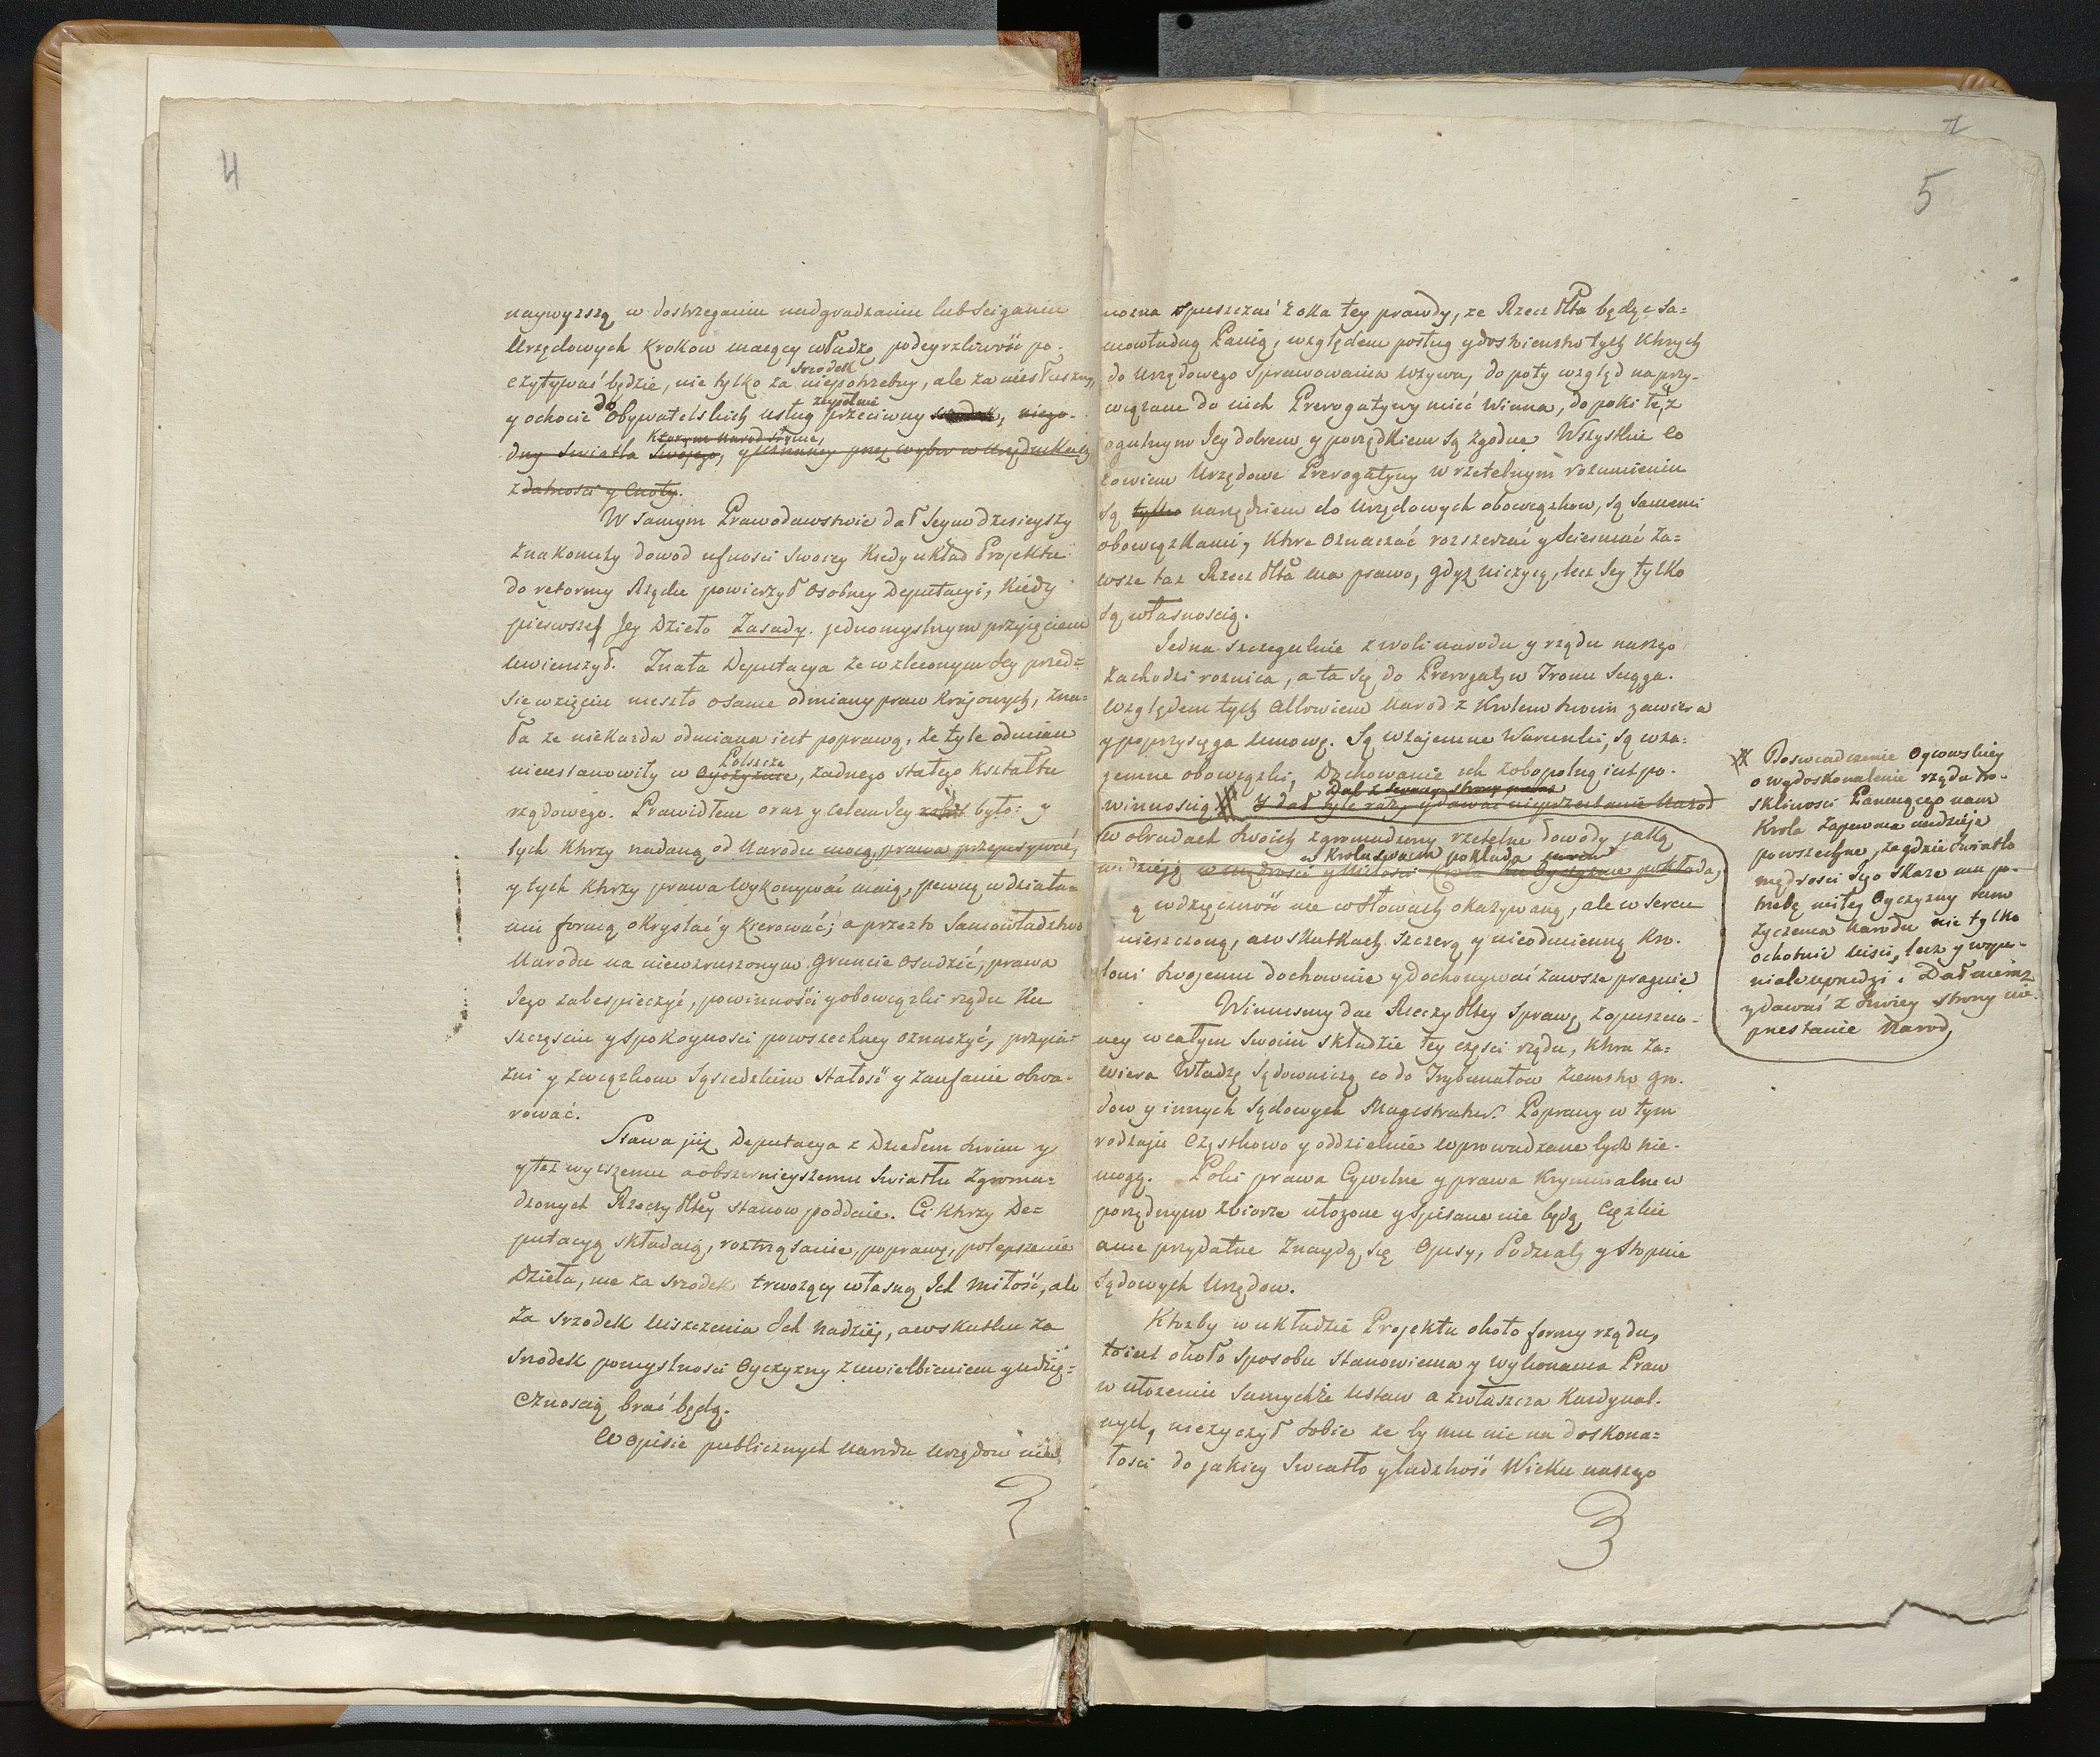 4
naywyzszą w dostrzeganiu nadgradzaniu lub sciganiu
Urzędowych krokow maiący władzę podeyrzliwość po-
srzodek
czytywać będzie, nie tylko za niepotrzebny, ale za niesłuszny,
zupełnie
y ochocie do Obywatelskich usług przeciwny srzodek, niego-
Ktorym Narod słynie,
dny Swiatła Swojego, y uznaney przez wybor w Urzędnikach
zdatnosci y Cnoty.
W samym Prawodawstwie dał Seym dzisieyszy
znakomity dowod ufnosci swoiey kiedy układ Projektu
do reformy Rządu powierzył osobney Deputacyi, kiedy
pierwsze Jey Dzieło Zasady jednomyslnym przyięciem
uwienczył. Znała Deputacya że w zleconym Jey przed=
sięwzięciu nieszło o same odmiany praw Krajowych, zna-
ła że niekażda odmiana iest poprawą, że tyle odmian
Polszcze
nieustanowiły w Oyczyznie, żadnego stałego kształtu
rządowego. Prawidłem oraz y celem Jey było: y
tych ktorzy nadaną od Narodu mocą, prawa przepisywać,
y tych ktorzy prawa wykonywać maią, pewną w działa=
niu formą okryslać y kierować; a przezto Samowładztwo
Narodu na niewzruszonym gruncie osadzić, prawa
Jego zabespieczyć, powinnośći y obowiązki rządu ku
szczęściu y spokoynosci powszechney oznaczyć, przyia-
zni y związkom Sąsiedzkim stałość y zaufanie obwa-
rować.
Stawa już Deputacya z Dziełem swoim y
y też wyższemu a obszernieyszemu swiatłu Zgroma=
dzonych Rzeczypltey Stanow poddaie. Ci ktorzy De=
putacyą składaią, roztrząsanie, poprawę, polepszenie
Dzieła, nie za srzodek trwożący własną Ich miłość, ale
za srzodek uiszczenia Ich nadziei, a w skutku za
srzodek pomyslnosci Oyczyzny z uwielbieniem y wdzię=
cznoscią brać będą.
W opisie publicznych Narodu Urzędow nie
5
można spuszczać z oka tey prawdy, ze Rzeczplta będąc Sa=
mowładną Panią, względem posług y dostoienstw tych ktorych
do Urzędowego Sprawowania wzywa, do poty wzgląd na przy-
wiązane do nich Prerogatywy mieć winna, do poki te, z
ogulnym Jey dobrem y porządkiem są zgodne. Wszystkie co
bowiem Urzędowe Prerogatywy w rzetelnym rozumieniu
są tylko narzędziem do Urzędowych obowiązkow, są samemi
obowiązkami, ktore oznaczać rozszerzać y sciesniać za=
wsze taz Rzeczplta ma prawo, gdyż niczyią, lecz Jey tylko
są własnoscią.
Jedna szczegulnie z woli narodu y rządu naszego
zachodzi roznica, a ta się do Prerogatyw Tronu sciąga.
względem tych albowiem Narod z Krolem swoim zawiera
y poprzysięga umowę. Są wzajemne Warunki, są wza=
jemne obowiązki, Dochowanie ich zobopolną iest po-
Dał z swoiey strony pełne
winnoscią # Y dał tyle razy y dawać nieprzestanie Narod
w obradach swoich zgromadzony rzetelne dowody jaką
w Krolu swoim pokłada
nadzieję w mądrosci y miłosci Krola ku Oyczyznie pokłada,
ą wdzięczność nie w słowach okazywaną, ale w sercu
mieszczoną, a w skutkach szczerą y nieodmienną Kro-
lowi swojemu dochownie y dochonywać zawsze pragnie
Winnismy dać Rzeczypltey Sprawę zopuszczo-
ney w całym swoim składzie tey części rządu, ktora za-
wiera Władzę Sądowniczą co do Trybunałow Ziemstw Gro-
dow y innych Sądowych Magistratur. Poprawy w tym
rodzaju częstkowo y oddzielnie wprowadzane bydź nie-
mogą. Poki prawa Cywilne y prawa Kryminalne w
porządnym zbiorze ułożone y spisane nie będą, Ciężkie
a nie przydatne znaydą się Opisy, Podziały y Stopnie
Sądowych Urzędow.
Ktozby w układzie Projektu około formy rządu,
to iest około sposobu stanowienia y wykonania Praw
w ułożeniu samychże Ustaw a zwłaszcza Kardynal-
nych, nieżyczył sobie że by mu nic na doskona=
łosci do jakiey Swiatło y ludzkość Wieku naszego
# Doswiadczenie Oycowskiey
o wydoskonalenie rządu tro-
skliwosci Panuiącego nam
Krola zapewnia nadzieja
powszechne, że gdzie Swiatło
mądrosci Jego skaze mu po-
trzebę miłey Oyczyzny tam
życzenia Narodu nie tylko
ochotnie uisci, lecz y wspa-
niale uprzedzi. Dał nieraz
y dawać z swoiey strony nie-
przestanie Narod,